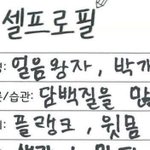 셀프로필
얼음왕자, 박개
습관: 담백질을
플랭크, 윗몸